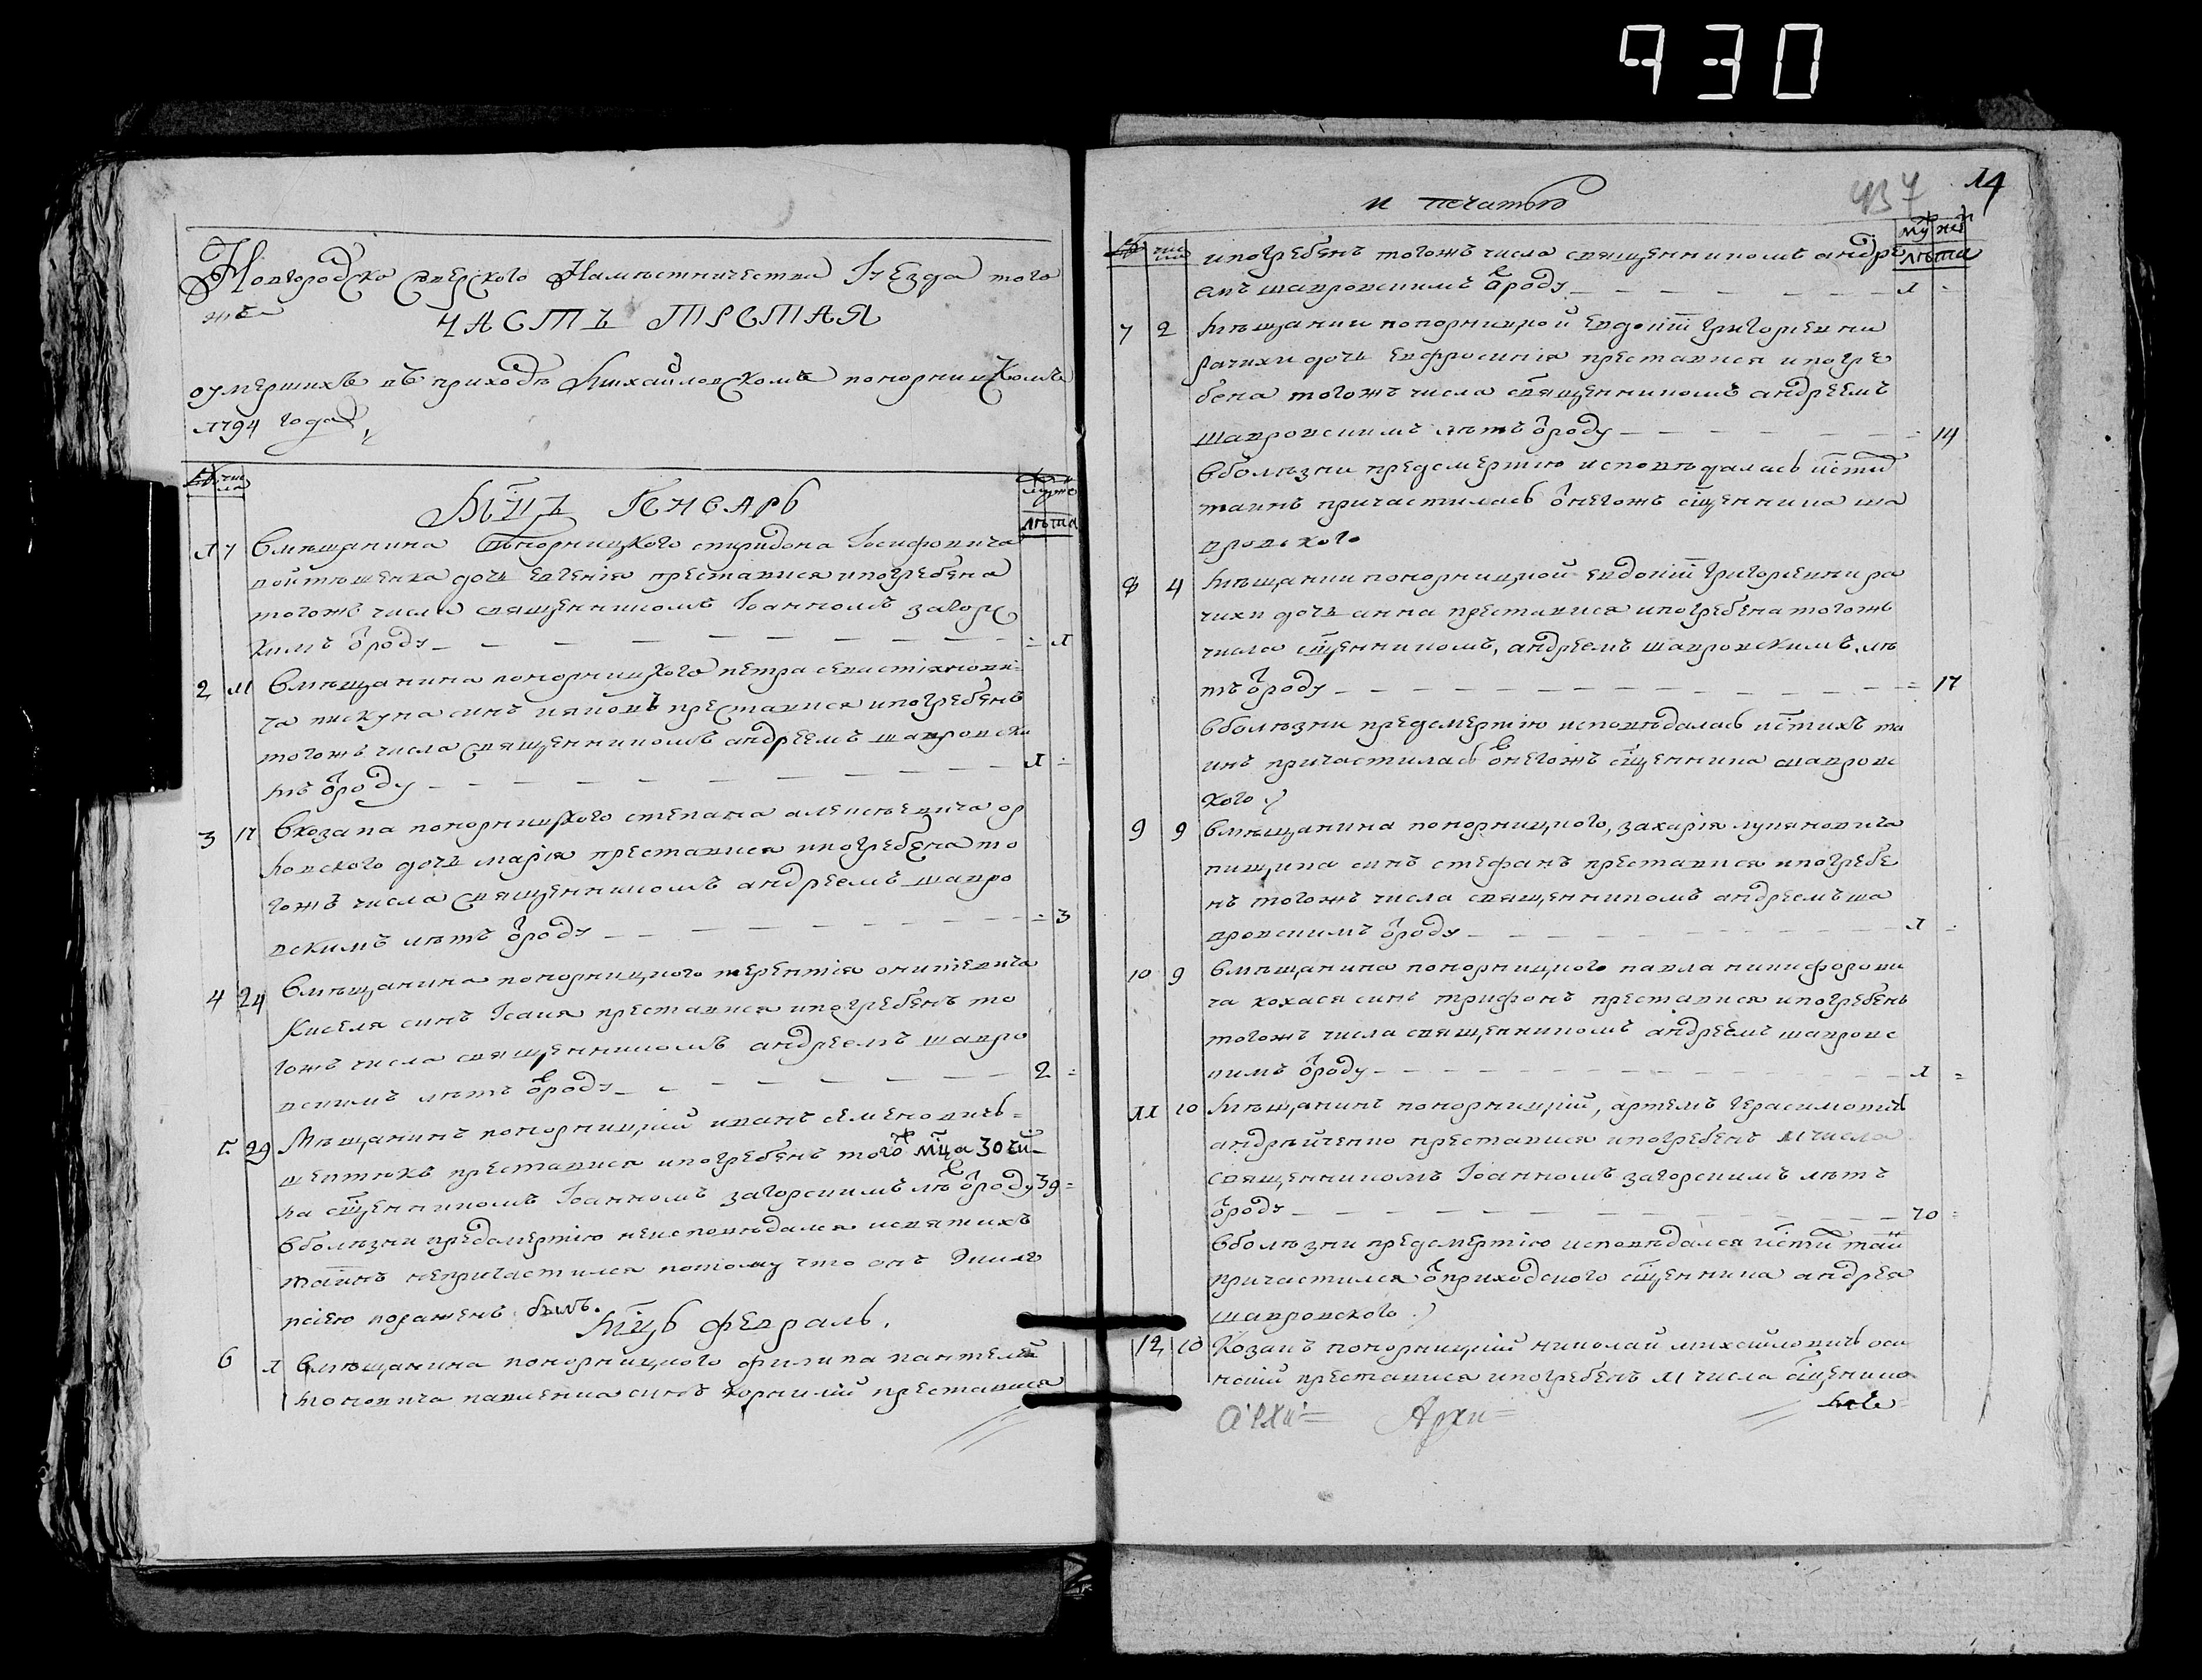 930
Новгородско Сѣверского Намѣстничества Уезда того
жъ
ЧАСТЬ ТРЕТАЯ
оумершихъ въ приходѣ Михайловскомъ понорницкомъ
1794 года
числа
Мцъ Генварь
лѣта
1 7 Вмѣщанина понорницкого спиридона Іосифовича
войтѣшенка дочь евгенія преставися ипогребена
тогожъ числа священникомъ Іоанномъ загорс
кимъ ѿроду = 1
2 11 Вмѣщанина понорницкого петра севастіянови=
ча пискуна синъ преставися ипогребенъ
тогожъ числа священникомъ андреемъ шавровски
мъ ѿроду 1 =
3 17 Вкозака понорницкого степана алексѣевича ор
ловского дочь марія преставися ипогребена то
гожъ числа священникомъ андреемъ шавро
вскимъ лѣтъ ѿроду = 3
4 24 Вмѣщанина понорницкого терентія
киселя синъ Ісаия преставися ипогребенъ то
гожъ числа священникомъ андреемъ шавро
вскимъ лѣтъ ѿроду 2 =
5 29 Мѣщанинъ понорницкій иванъ семеновичъ=
преставися ипогребенъ того мца 30 чи
ла сщенникомъ Іоанномъ загорскимъ лѣ ѿроду 39 =
Вболѣзни предсмертію неисповѣдался исвятихъ
таинъ непричастился потому что онъ Эпиле
псіею пораженъ былъ.
Мцъ Февраль.
6 1 Вмѣщанина понорницкого филипа пантелей
моновича павленка синъ корнилій преставися
и печатью
437 14
числа
ипогребенъ тогожъ числа священникомъ андре лѣта
емъ шавровскимъ ѿроду 1 =
7 2 Мѣщанки понорницкой евдокіи григориевни
рачихи дочь евфросинія преставися ипогре
бена тогожъ числа священникомъ андреемъ
шавровскимъ лѣтъ ѿроду = 14
Вболѣзни предсмертію исповѣдалась исти
таинъ причастилась ѿнегожъ сщенника ша
вровского
8 4 Мѣщанки понорницкой евдокіи григориевни ра
чихи дочь анна преставися ипогребена тогожъ
числа сщенникомъ, андреемъ шавровскимъ, лѣ
тъ ѿроду = 17
Вболѣзни предсмертію исповѣдалась истихъ та
инъ причастилась ѿнегожъ сщенника шавровс
кого
9 9 Вмѣщанина понорницкого, захарія лукяновича
синъ стефанъ преставися ипогребе
нъ тогожъ числа священникомъ андреемъ ша
вровскимъ ѿроду 1 =
10 9 Вмѣщанина понорницкого павла никифорови
ча кохася синъ трифонъ преставися ипогребенъ
тогожъ числа священникомъ андреемъ шавровс
кимъ ѿроду 1 =
11 10 Мѣщанинъ понорницкій, артемъ герасимовичъ
андрѣйченко преставися ипогребенъ 11 числа
священникомъ Іоанномъ загорскимъ лѣтъ
ѿроду 70 =
Вболѣзни предсмертію исповѣдался исти таи
причастился ѿприходского сщенника андрея
шавровского
12 10 Козакъ понорницкій николай михайловичъ
преставися ипогребенъ 11 числа сщеннико
мъ
Архи=